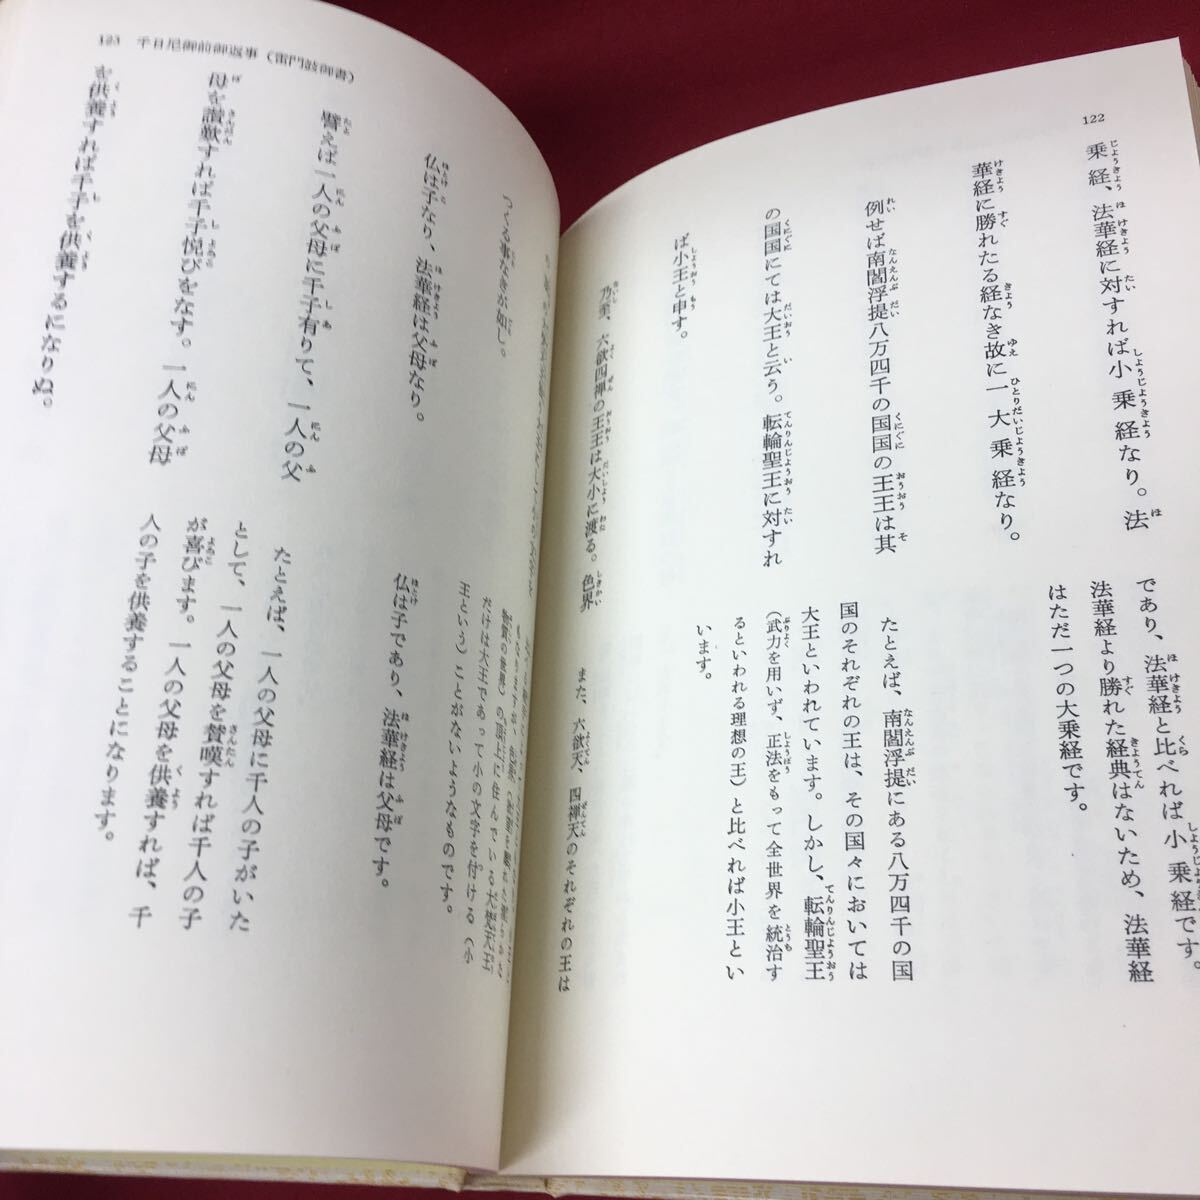 122
乗経、法華経に対すれば小乗経なり。法
華経に勝れたる経なき故に一大乗経なり。
例せば南閻浮提八万四千の国国の王王は其
の国国にては大王と云う。転輪聖王に対すれ
ば小王と申す。
乃至、六欲四禅の王王は大小に渡る。色界
であり、法華経と比べれば小乗経です。
法華経より勝れた経典はないため、法華経
はただ一つの大乗経です。
たとえば、南閻浮提にある八万四千の国
国のそれぞれの王は、その国々においては
大王といわれています。しかし、転輪聖王
(武力を用いず、正法をもって全世界を統治す
るといわれる理想の王)と比べれば小王とい
います。
また、六欲天、四禅天のそれぞれの王は
123 千日尼御前御返事(雷門鼓御書)
つくる事なきが如し。
仏は子なり、法華経は父母なり。
譬えば一人の父母に千子有りて、一人の父
母を讃歎すれば千子悦びをなす。一人の父母
を供養すれば千子を供養するになりぬ。
物質の世界)の頂上に住んでいる大梵天王
だけは大王であって小の文字を付ける(小
王という)ことがないようなものです。
仏は子であり、法華経は父母です。
たとえば、一人の父母に千人の子がいた
として、一人の父母を賛嘆すれば千人の子
が喜びます。一人の父母を供養すれば、千
人の子を供養することになります。